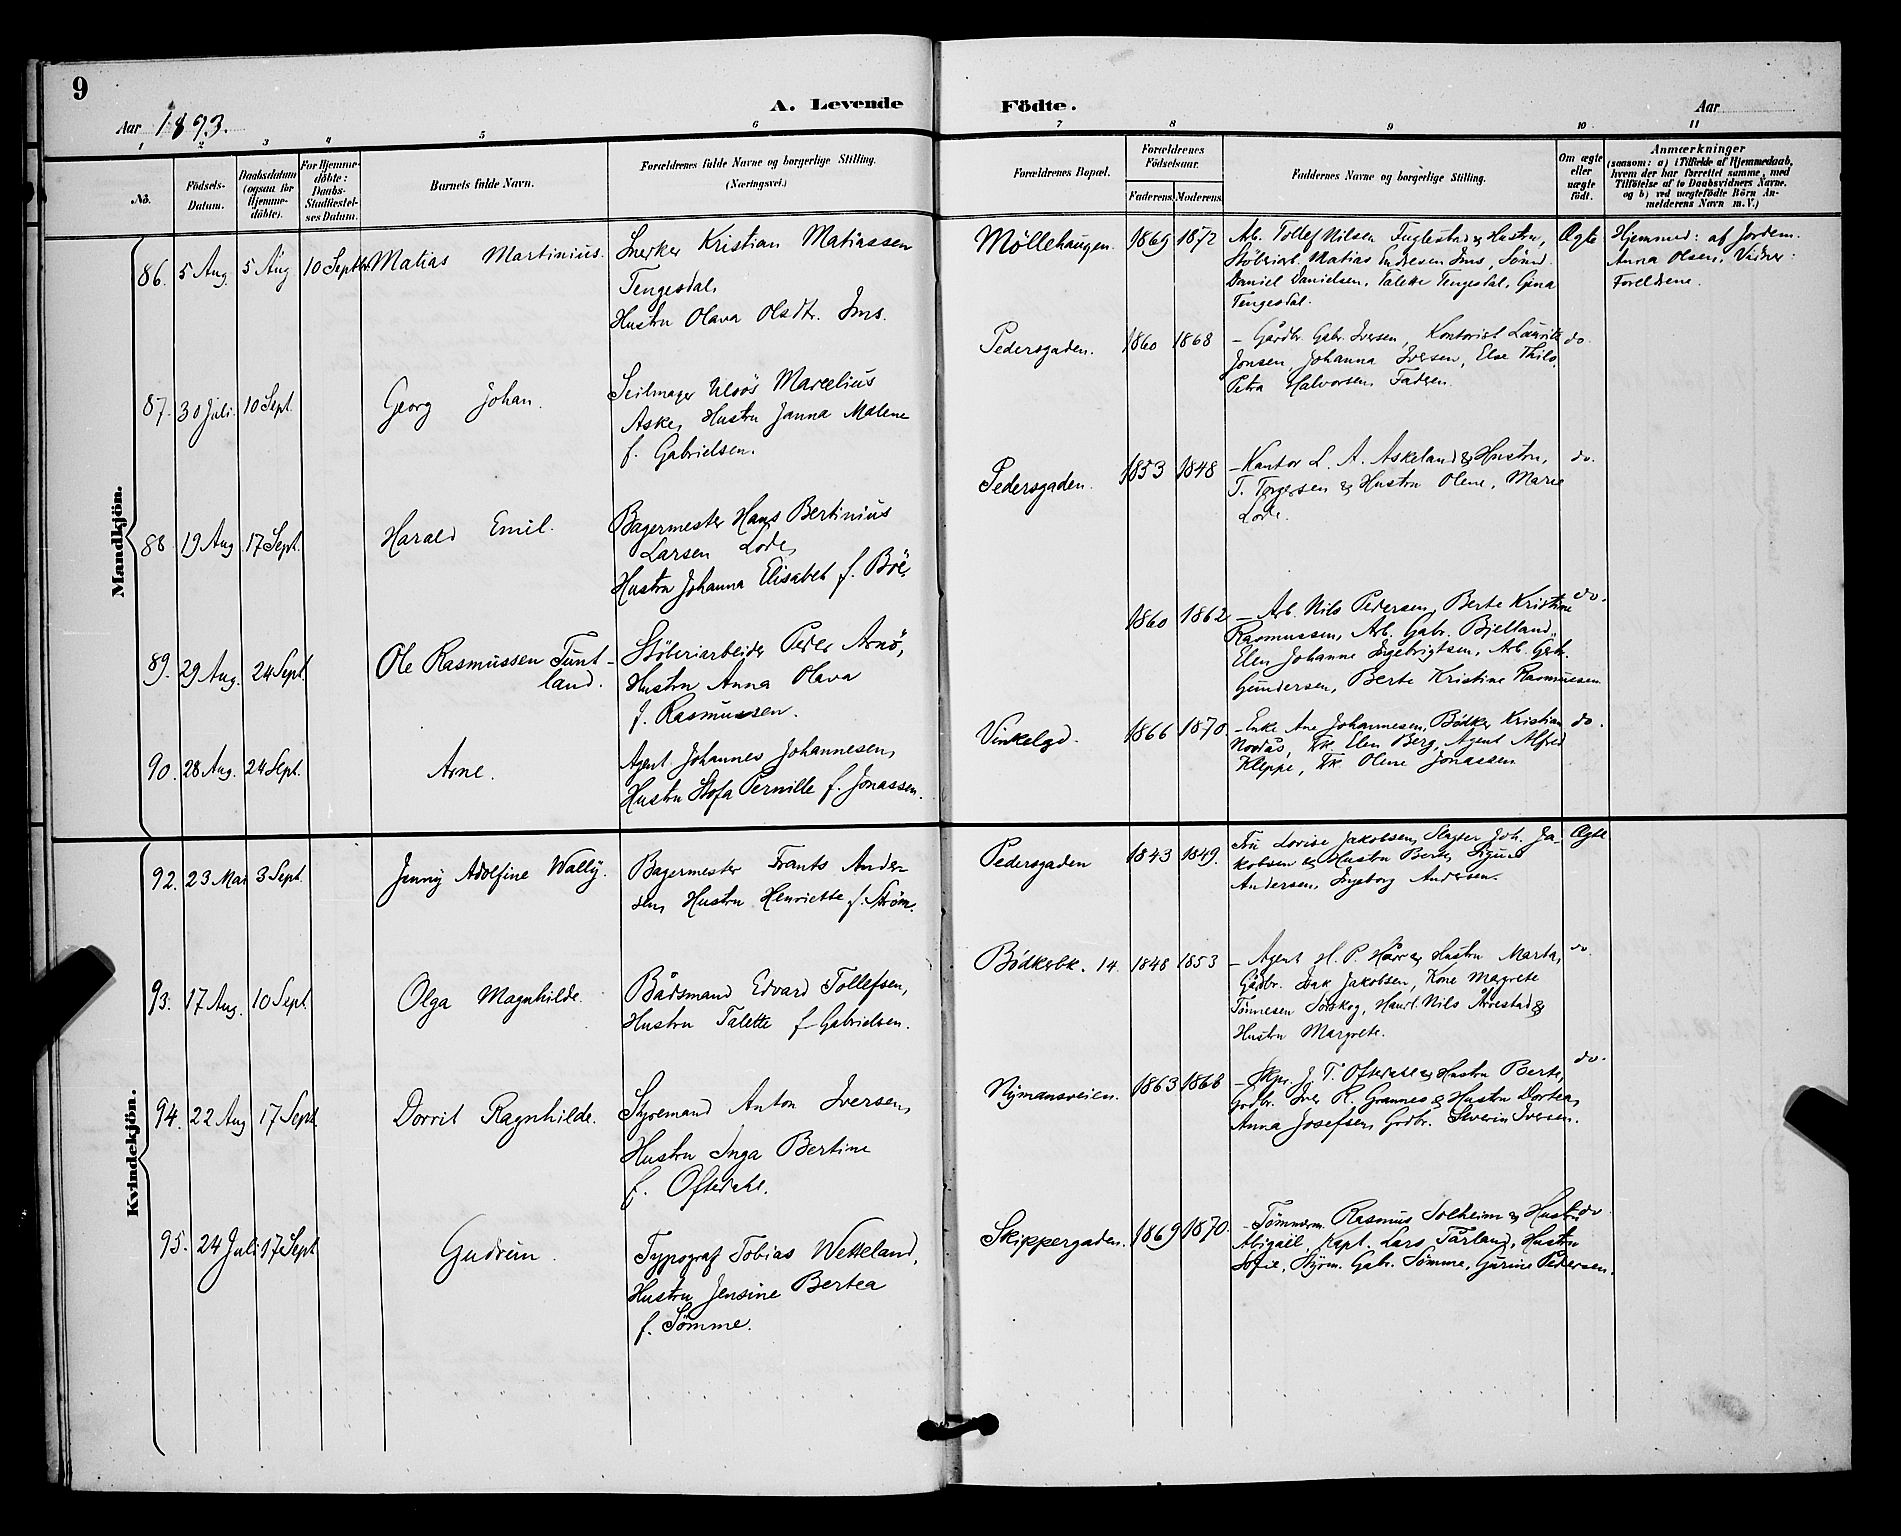 9
A. Levende Födte.
Aar 1893.
Aar
1 2 3 4 5 6 7 8 9 10 11
No.
Födsels-Datum.
Daabsdatum (ogsaa for Hjemme-döbte).
For Hjemme-döbte: Daabs-Stadfæstel-ses Datum.
Barnets fulde Navn.
Forældrenes fulde Navne og borgerlige Stilling. (Næringsvei.)
Forældrenes Bopæl.
Forældrenes Födselsaar.
Faderens Moderens
Faddernes Navne og borgerlige Stilling.
Om ægte eller uægte födt.
Anmærkninger
(saasom: a) i Tilfælde af Hjemmedaab, hvem der har forrettet samme, med Tilföielse af to Daabsvidners Navne, og b) ved uægtefödte Börn An-melderens Navn m. V.)
Mandkjön.
86. 5 Aug. 5 Aug 10 Septbr. Matias Martinius.
Snerker Kristian Matiassen
Tengesdal,
Hustru Olava Olsdtr. Ims.
Möllehaugen. 1869 1872
Arb. Tollef Nilsen Fuglestad & Hustru,
Stöberiarb. Matias Endresen Ims,
Daniel Danielsen, Talette Tengesdal, Gina
Tengesdal.
Ægte
Hjemmed: af Jordem.
Anna Olsen, Vidner:
Foreldrene.
87. 30 Juli. 10 Sept. Georg Johan.
Seilmager Marcelius
Aske, Hustru Janna Malene
f. Gabrielsen.
Pedersgaden. 1860 1868
– Gårdbr. Gabr. Iversen, Kontorist Lauritz
Jonsen, Johanna Iversen, Else Thilo,
Petra Halvorsen, Faderen.
do.
88. 19 Aug 17 Sept. Harald Emil.
Bagermester Hans Bertinius
Larsen Lode,
Hustru Johanna Elisabet f. Böe.
Pedersgaden. 1853 1848
– Kantor L. A. Askeland & Hustru,
T. Torgersen & Hustru Olene, Marie
Lode.
do.
89. 29 Aug. 24 Sept. Ole Rasmussen Tunt-
land.
Stöberiarbeider Peder Arnö,
Hustru Anna Olava
f. Rasmussen.
1860 1862
– Arb. Nils Pedersen, Berte Kristine
Rasmussen, Arb. Gabr. Bjelland,
Elen Johanne Ingebrigtsen, Arb. Gab.
Gundersen, Berte Kristine Rasmussen
do.
90. 28 Aug. 24 Sept. Arne.
Agent Johannes Johannesen,
Hustru Pernille f. Jonassen.
Vinkelgd. 1866 1870
– Enke Ane Johannesen, Bödker Kristian
Nordås, Frk. Elen Berg, Agent Alfred
Kleppe, Frk. Olene Jonassen
do.
Kvindekjön.
92. 23 Mai 3 Sept. Jenny Adolfine Wally.
Bagermester Frants Ander-
sen, Hustru Henriette f. Ström.
Pedersgaden 1843 1849.
Fru Lovise Jakobsen, Slagter Joh. Ja-
kobsen & Hustru Berte, Sigurd
Andersen, Ingeborg Andersen.
Ægte
93. 17 Aug. 10 Sept. Olga Magnhilde.
Bådsmand Edvard Tollefsen,
Hustru Talette f. Gabrielsen.
Bödkerbk. 14. 1848 1853
– Agent H. P. Hår & Hustru Marta,
Gårdbr. Isak Jakobsen, Kone Magrete
Tönnesen Torskog, Handl. Nils Årrestad &
Hustru Margrete.
do.
94. 22 Aug 17 Sept. Dorrit Ragnhilde.
Styremand Anton Iversen,
Hustru Inga Bertine
f. Oftedahl.
Nymansveien. 1863 1868
– Skpr. J. T. Oftedahl & Hustru Berte,
Grdbr. Iver K. Grannes & Hustru Dortea,
Anna Josefsen, Grdbr. Severin Iversen.
do.
95. 24 Juli 17 Sept. Gudrun.
Typograf Tobias Wetteland,
Hustru Jensine Bertea
f. Sömme.
Skippergaden. 1869 1870.
– Tömmerm. Rasmus Solheim & Hustru
Abigail, Kapt. Lars Tärland, Hustru
Sofie, Styrm. Gab. Sömme, Gurine Pedersen.
do.